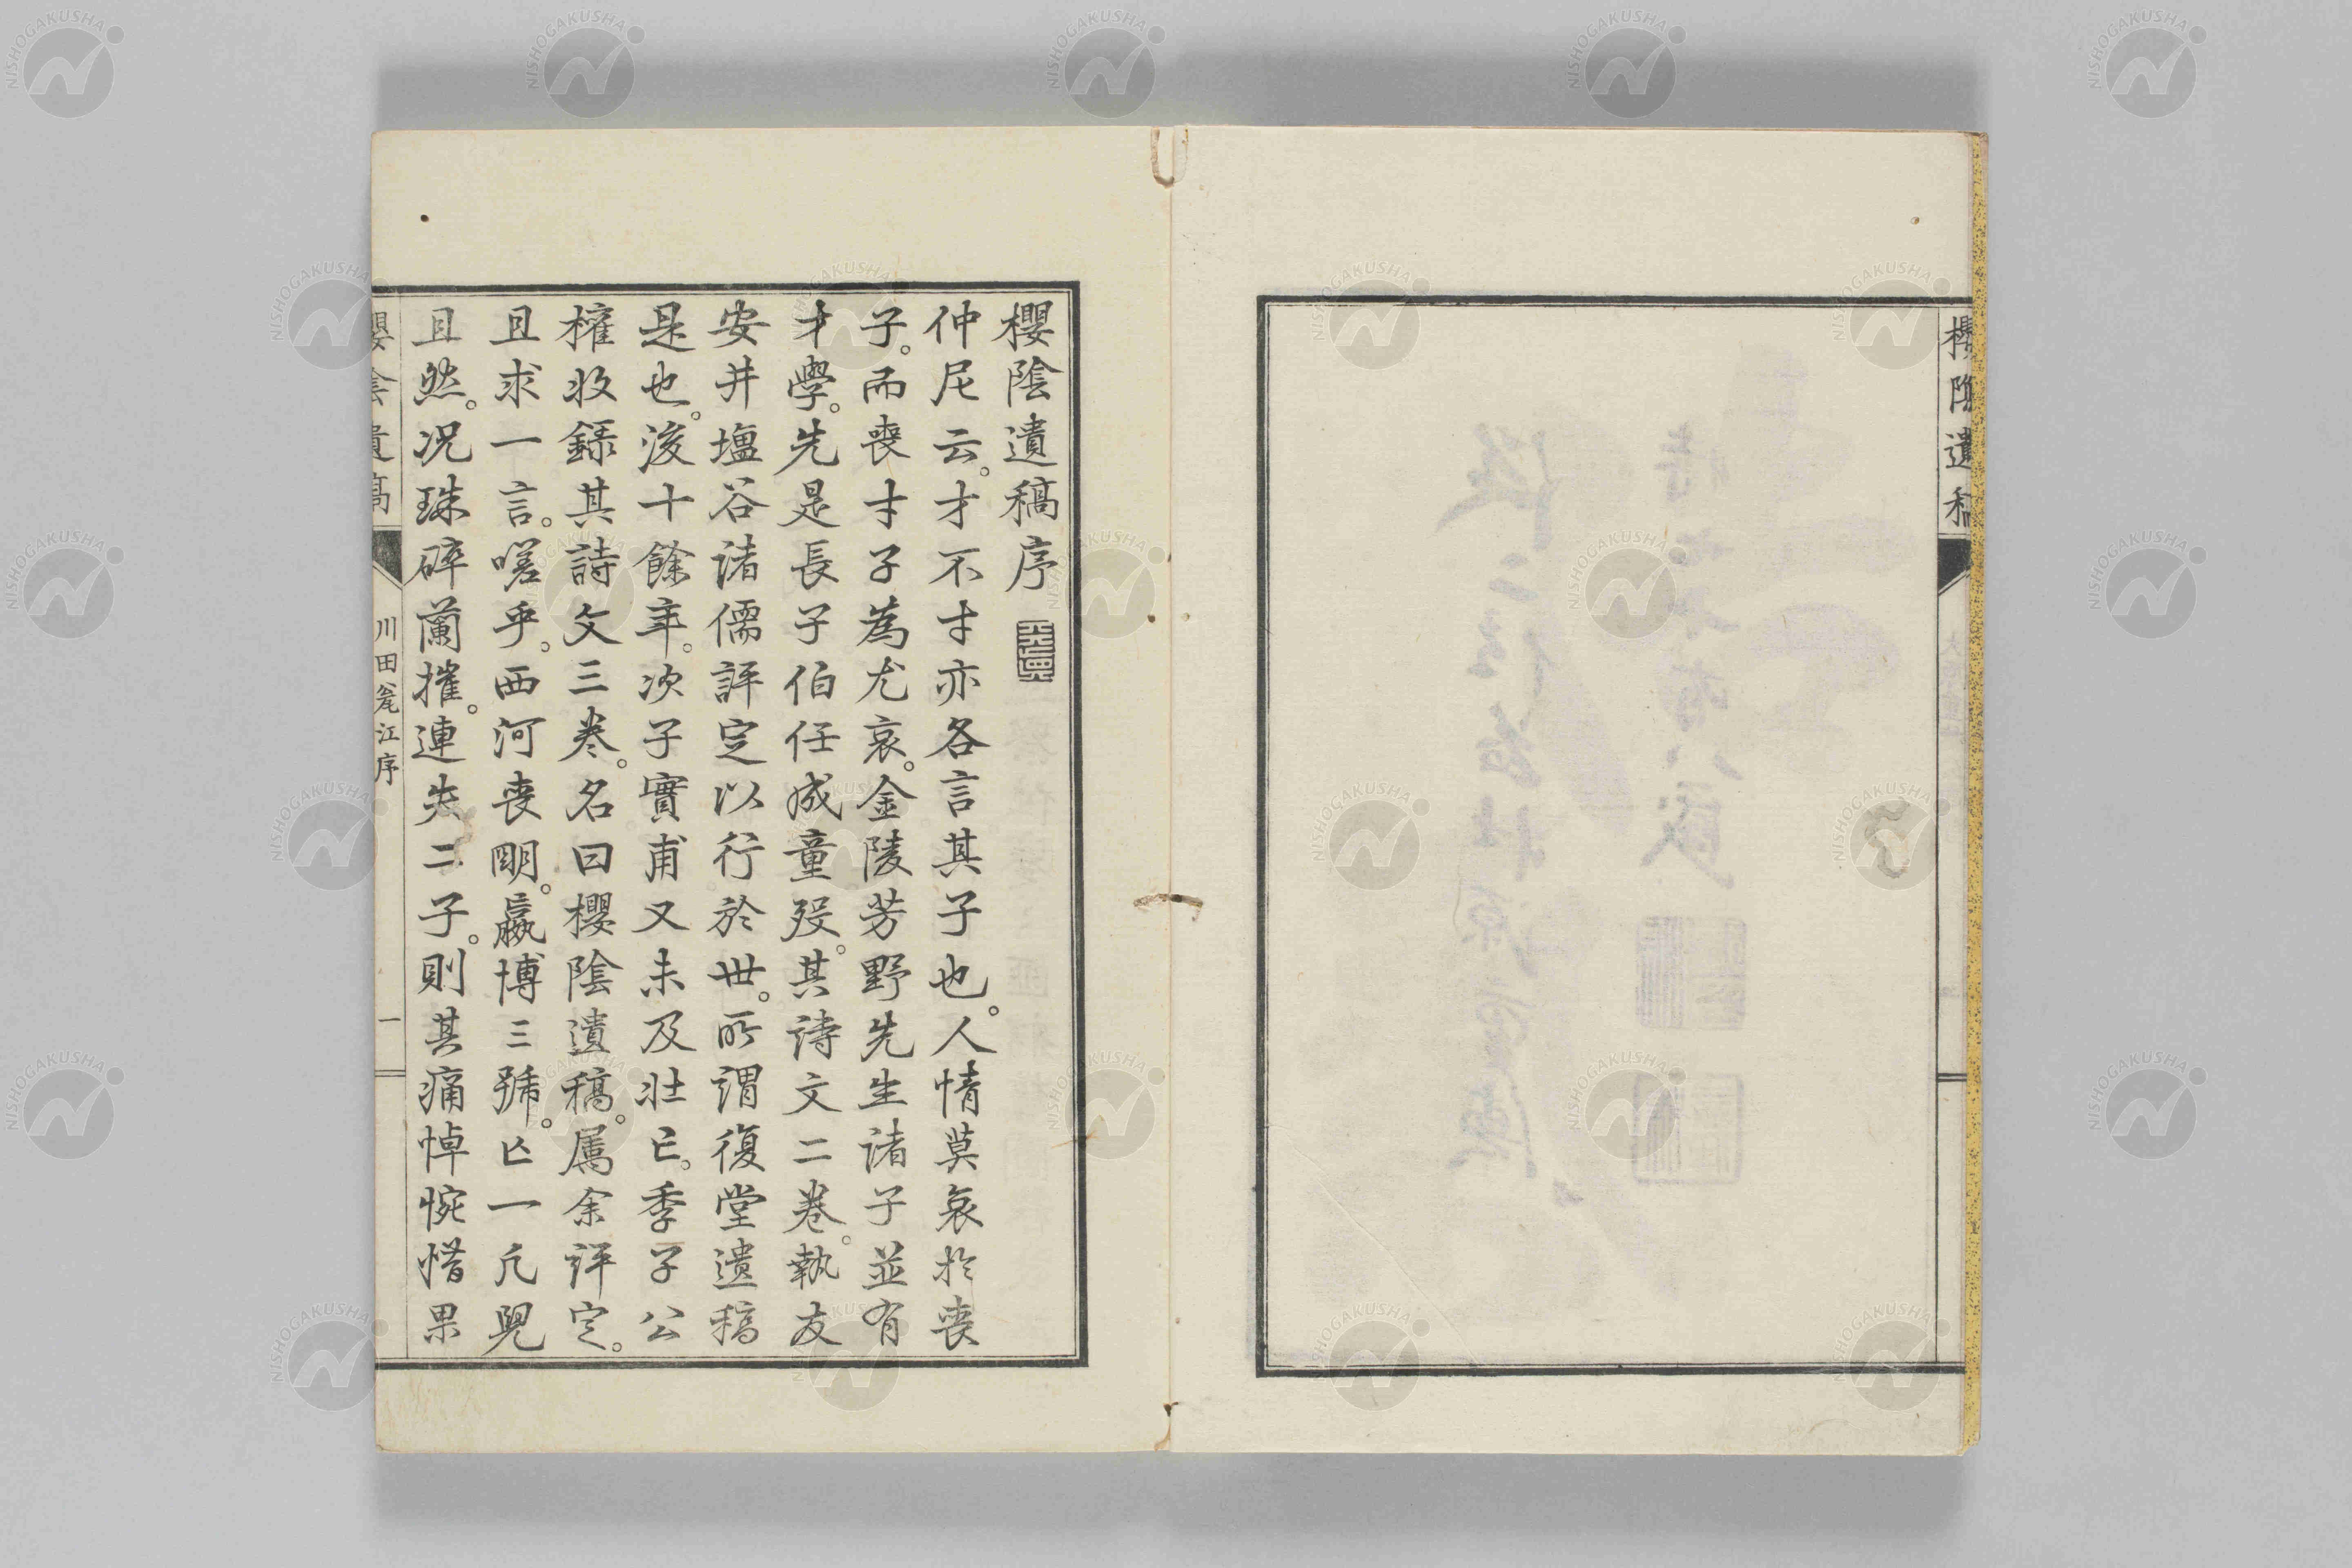 櫻陰遺稿
櫻陰遺稿序
仲尼云。才不才亦各言其子也。人情莫哀於喪
子。而喪才子為尤哀。金陵芳野先生諸子並有
才學。先是長子伯任成童歿。其詩文二卷。執友
安井塩谷諸儒評定以行於世。所謂復堂遺稿
是也。後十餘年。次子實甫又未及壯亡。季子公
權收錄其詩文三卷。名曰櫻陰遺稿。属余評定。
且求一言。嗟乎。西河喪明。嬴博三號。亡一凡兒
且然。况珠碎蘭摧。連失二子。則其痛悼惋惜果
櫻陰遺稿
川田甕江序
一
NISHOGAKUSHA